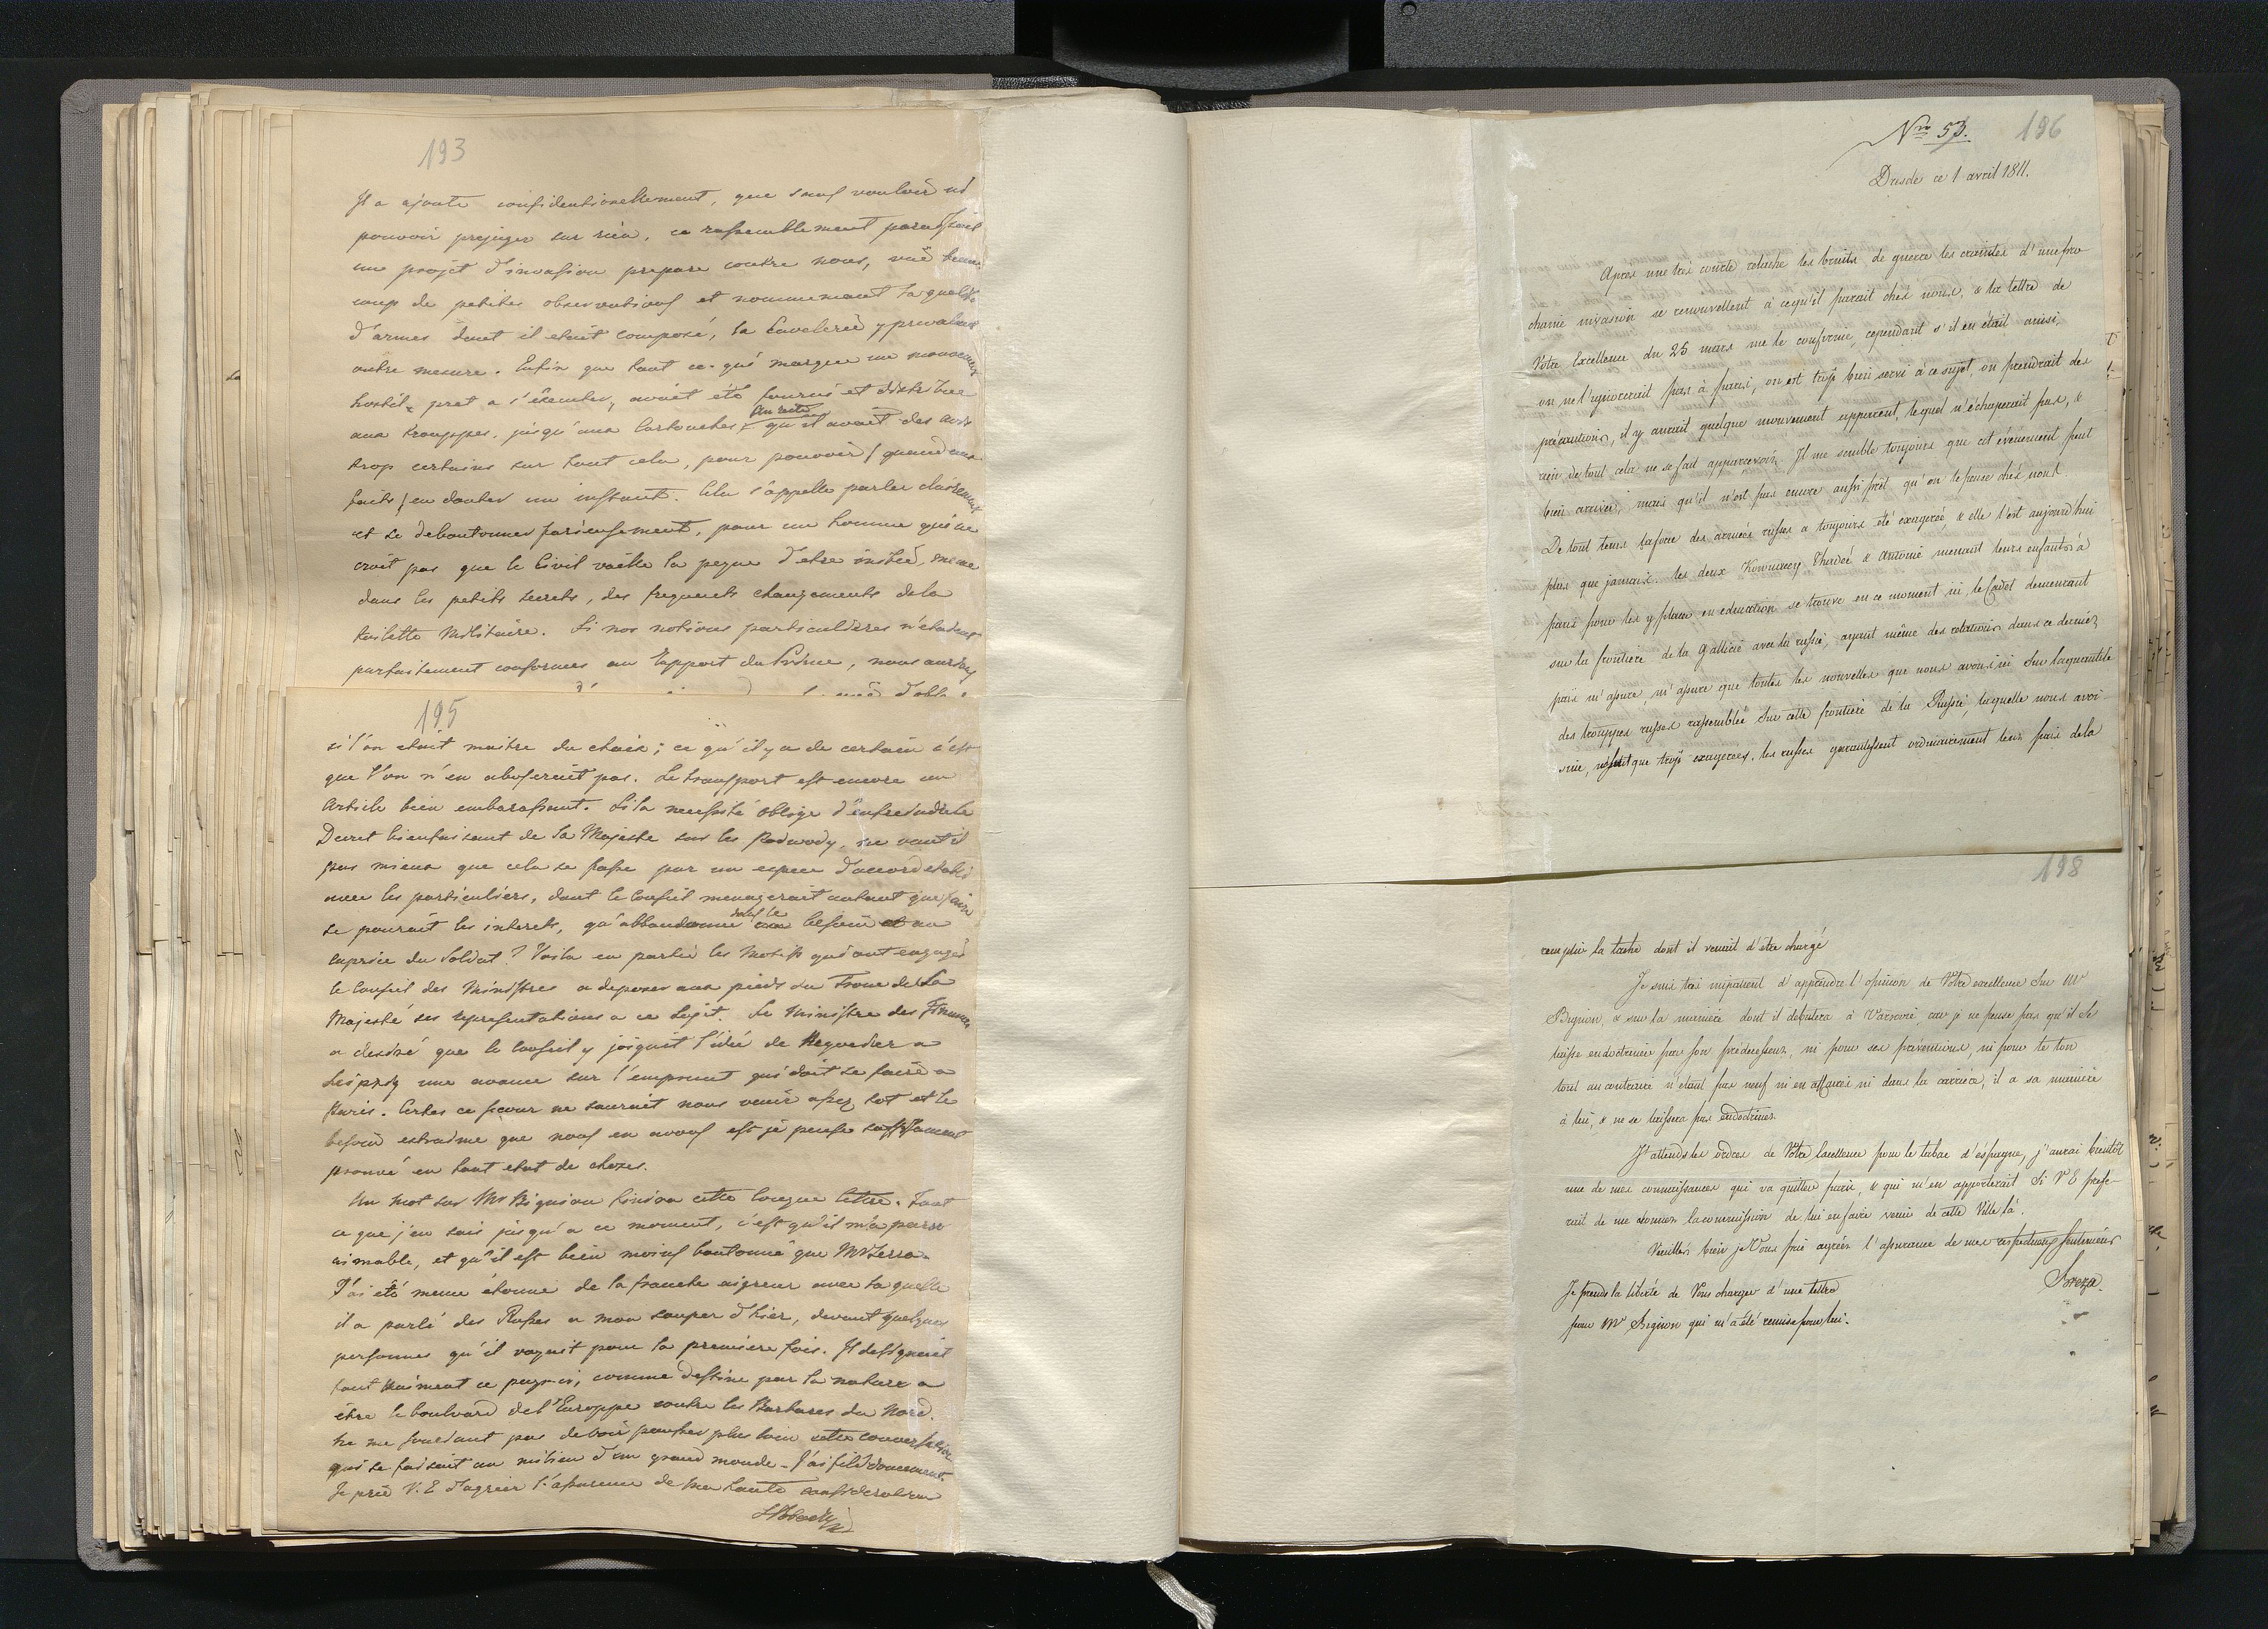 193
Il a ajouté confidentionellement, que sans vouloir ni
pouvoir prejuger sur rien, ce rassemblement paraissait
un projet d'invasion prepare contre nous, vuë beau
coup de petites observations et nommement la qualité
d'armes dont il etait composé, la Cavalerie y prevalant
outre mesure. Enfin que tout ce qui marque un mouvement
hostil pret a s'executer, avait été fourni et distribue
aux trouppes, jusqu'aux Cartouches, qu'il avait des avis
trop certains sur tout cela, pour pouvoir / quand aux
faits / en douter un instant. Cela s'appelle parler clairement
et se deboutonner furieusement, pour un homme qui ne
croit pas que le Civil vaille la peyne d'etre initié, meme
dans les petits secrets, des frequents changements de la
toilette Militaire. Si nos notions particulieres n'etaient
parfaitement conformes au rapport du Prince, nous aurions
195
si l'on etait maitre du choix; ce qu'il y a de certain c'est
que l'on n'en abuserait pas. Le transport est encore un
article bien embarassant. Si la necessité oblige d'enfreindre le
Decret bienfaisant de Sa Majesté sur les Podwody, ne vaut il
pas mieux que cela se fasse par un espece d'accord etabli
avec les particuliers, dont le Conseil menagerait autant que faire
se pourait les interets, qu'abbandonné au besoin et au
caprice du Soldat? Voila en partie les Motifs qui ont engagé
le Conseil des Ministres a deposer aux pieds du Trone de Sa
Majesté ses representations a ce sujet. Le Ministre des Finances
a desiré que le Conseil y joignit l'idée de Negocier a
Leipzig une avance sur l'emprunt qui doit se faire a
Paris. Certes ce secour ne saurait nous venir assez tot et le
besoin extreme que nous en avons est je pense suffisament
prouvé en tout etat de choses.
Un mot sur Mr Bignion finira cette longue lettre. Tout
ce que j'en sais jusqu'a ce moment, c'est qu'il m'a paru
aimable, et qu'il est bien moins boutonné que Mr Serra.
J'ai été meme étonné de la franche aigreur avec laquelle
il a parlé des Russes a mon souper d'hier, devant quelques
personnes qu'il voyait pour la premiere fois. Il designait
tout ce pays-ci, comme destiné par la nature a
être le boulvard de l'Europpe contre les Barbares du Nord.
Ne me souciant pas de voir pousser plus loin cette conversation
qui se faisait au milieu d'un grand monde - j'ai filé doucement.
Je prie V. E d'agreer l'assurance de ma haute consideration
Nro 53. 196
Dresde ce 1 avril 1811.
Apres une tres courte relache les bruits de guerre les craintes d'une pro
chaine invasion se renouvellent à ce qu'il parait chés nous, & la lettre de
Votre Excellence du 25 mars me le confirme, cependant s'il en était ainsi,
on ne l'ignorerait pas à paris, on est trop bien servi à ce sujet, on prendrait des
précautions, il y aurait quelque mouvement apparent, lequel n'échaperait pas, &
rien de tout cela ne se fait appercevoir. Il me semble toujours que cet évenement peut
bien arriver, mais qu'il n'est pas encore aussi prêt qu'on le pense chés nous.
De tout tems la force des armées russes a toujours été exagerée, & elle l'est aujourd'hui
plus que jamais. les deux Thadée & Antoine menant leurs enfants à
paris pour les y placer en education se trouve en ce moment ici, le Cadet demeurant
sur la frontiere de la Gallicie avec la russie, ayant même des relations dans ce dernier
pais m'assure, m'assure que toutes les nouvelles que nous avons ici sur la quantité
des trouppes russes rassemblée sur cette frontiere de la Russie, laquelle nous avoi
sine, sont que trop exagerées. les russes garantissent ordinairement leur pais de la
198
remplir la tache dont il venait d'être chargé
Je suis très impatient d'apprendre l'opinion de Votre excellence sur Mr
Bignion, & sur la maniere dont il debutera à Varsovie, car je ne pense pas qu'il se
laisse endoctriner par son prédecesseur, ni pour ses préventions, ni pour le ton
tout au contraire n'etant pas neuf ni en affaires ni dans la carriere, il a sa maniere
à lui, & ne se laissera pas endoctriner.
J'attends les ordres de Votre Excellence pour le tabac d'éspagne, j'aurai bientôt
une de mes connaissances qui va quitter paris, & qui m'en apporterait si V E prefe-
rait de me donner la commission de lui en faire venir de cette Ville là.
Veuillés bien je Vous prie agréer l'assurance de mes respectueux sentimens
Breza
Je prends la liberté de Vous charger d'une lettre
pour Mr Bignion qui m'a été remise pour lui.